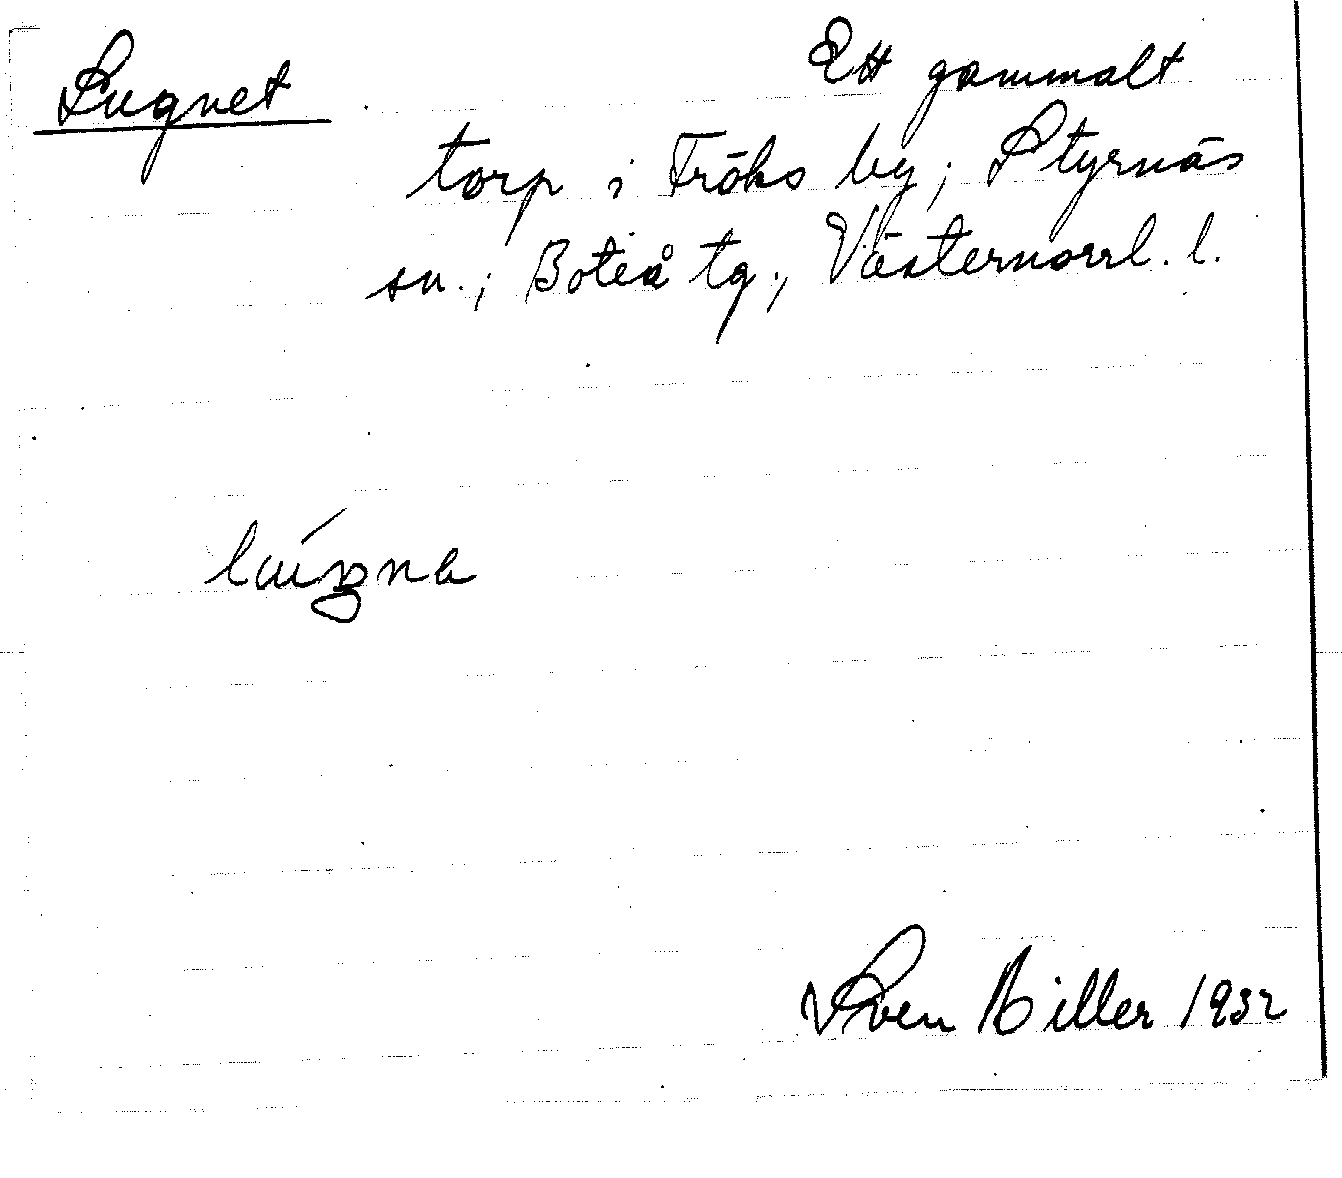 Lugnet
Ett gammalt
torp i Fröks by; Styrnäs
sn.; Boteå tg., Västernorrl. l.
Sven Hiller 1932